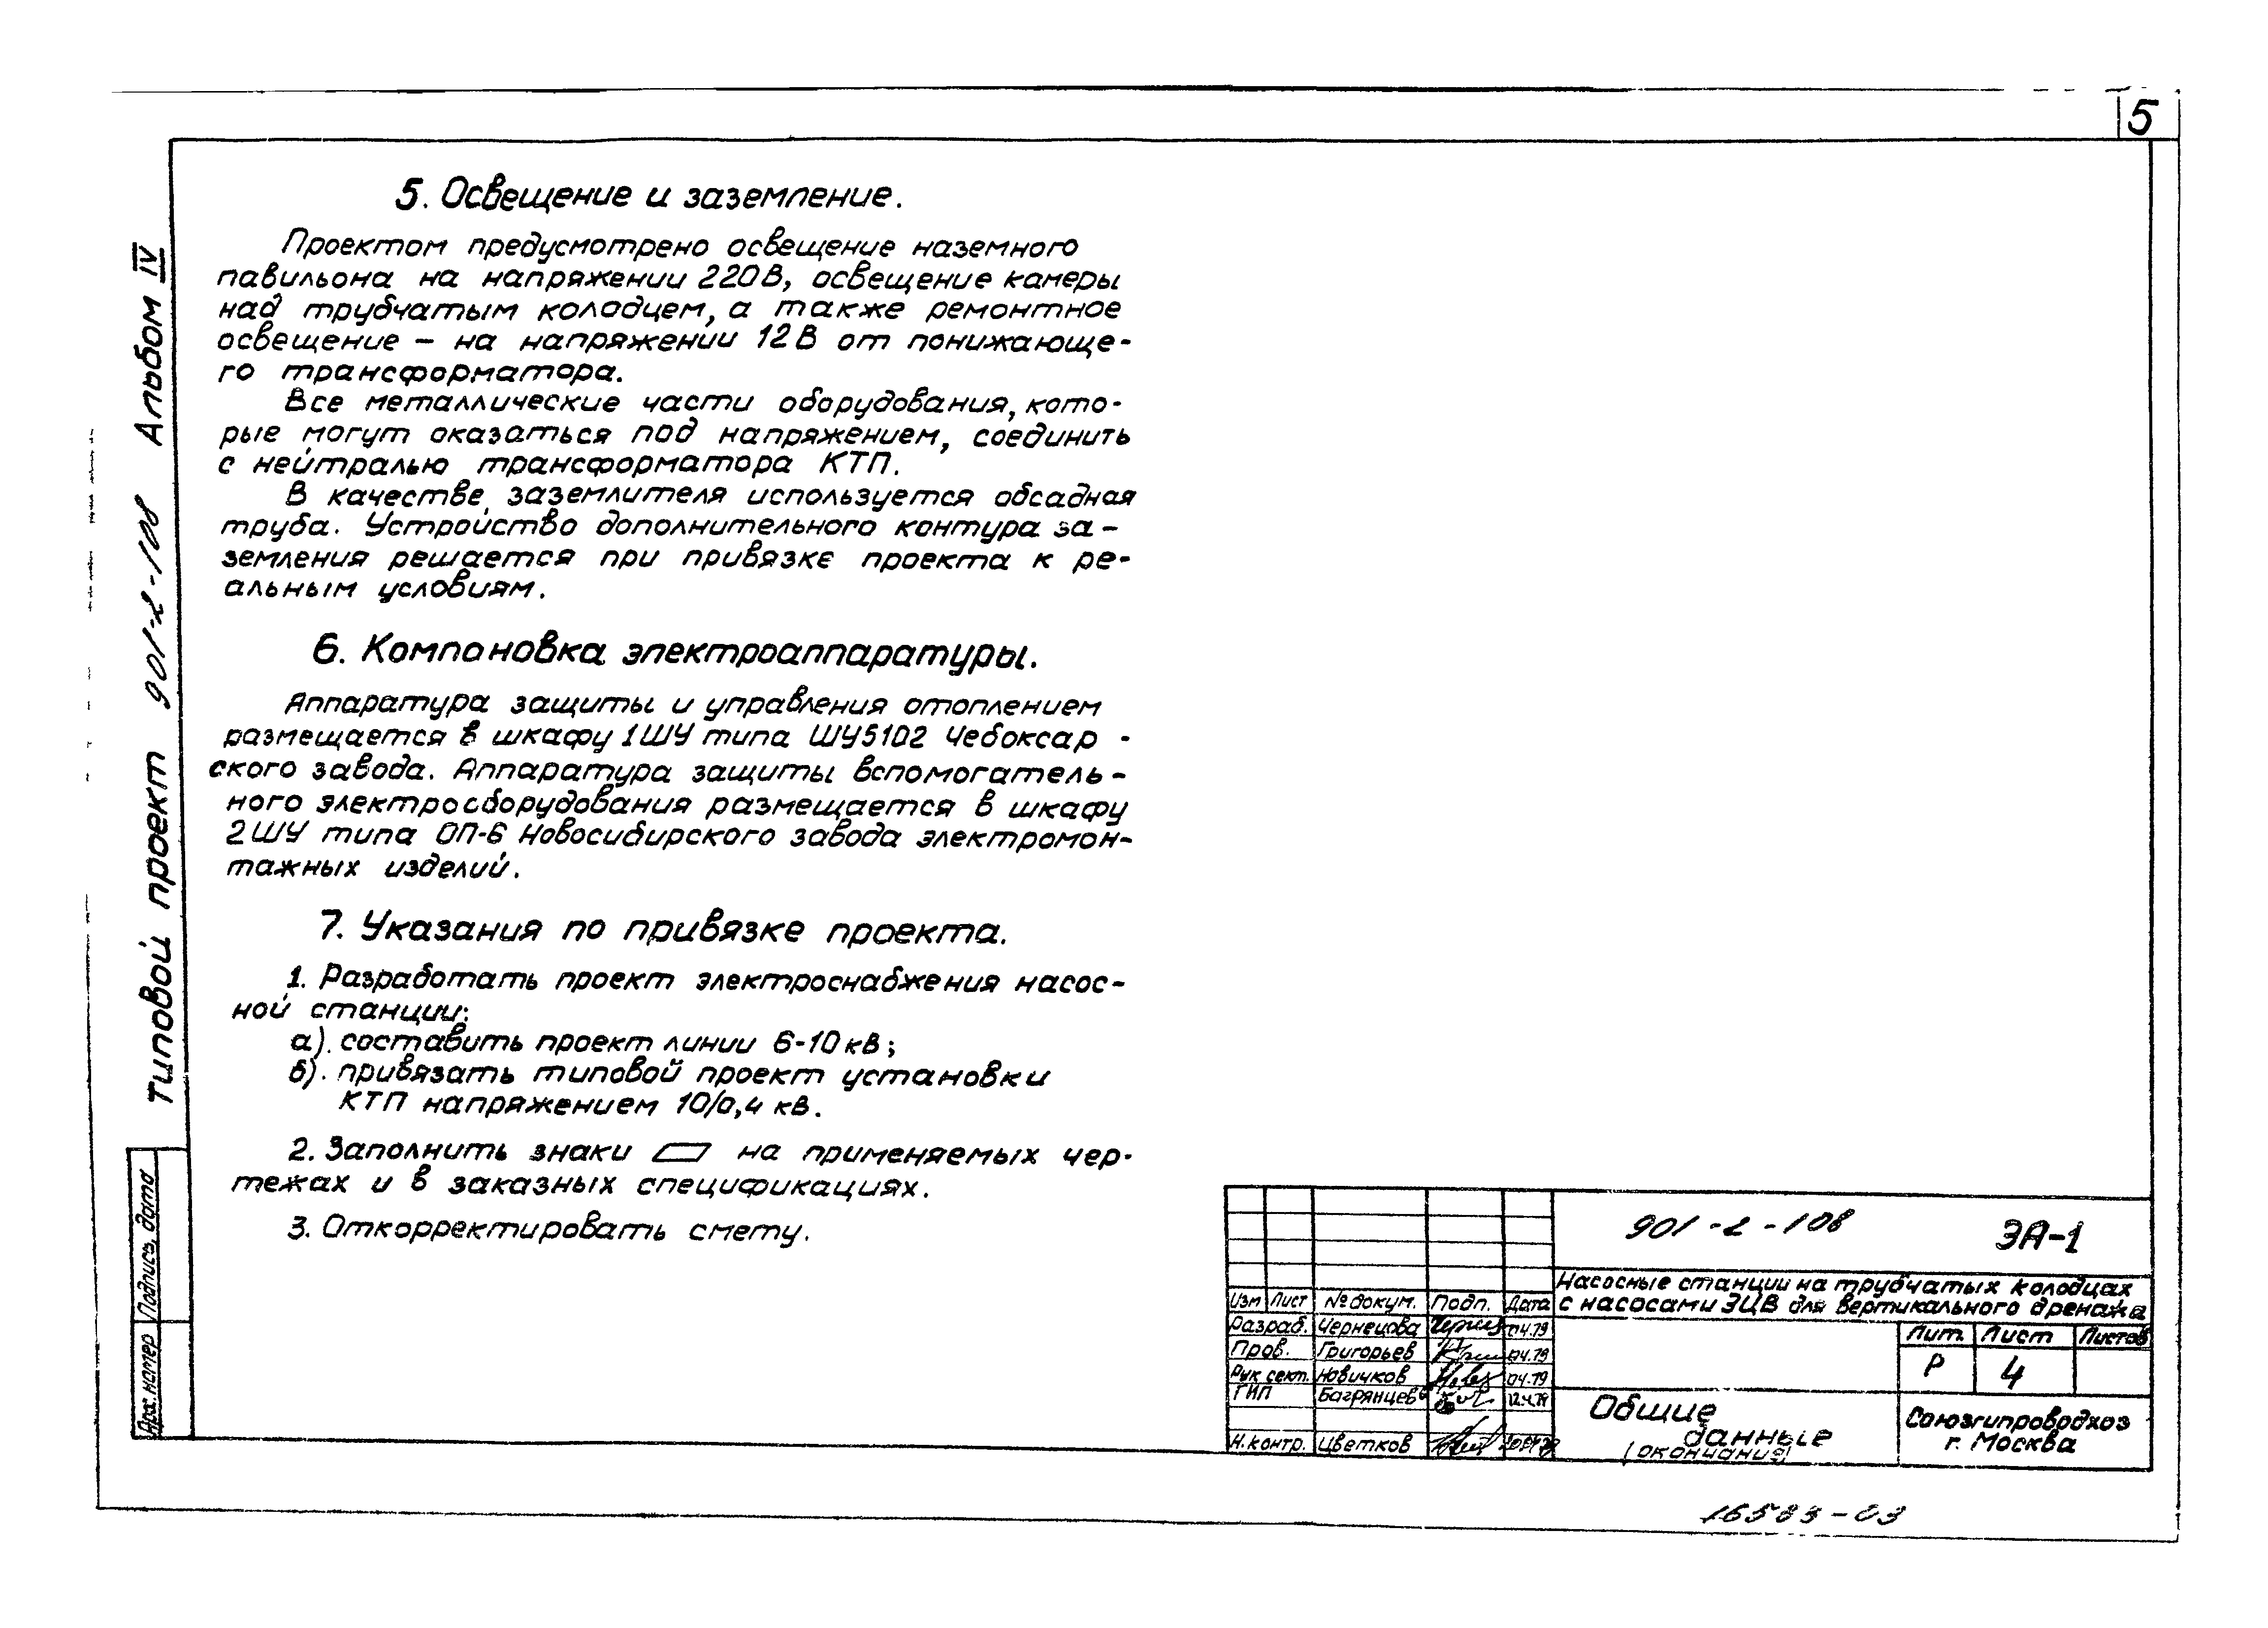 5
5. Освещение и заземление.
Проектом предусмотрено освещение наземного
павильона на напряжении 220В, освещение камеры
над трубчатым колодцем, а также ремонтное
освещение – на напряжении 12В от понижающе-
го трансформатора.
Все металлические части оборудования, кото-
рые могут оказаться под напряжением, соединить
с нейтралью трансформатора КТП.
В качестве заземлителя используется обсадная
труба. Устройство дополнительного контура за-
земления решается при привязке проекта к ре-
альным условиям.
6. Компановка электроаппаратуры.
Аппаратура защиты и управления отоплением
размещается в шкафу 1ШУ типа ШУ5102 Чебоксар-
ского завода. Аппаратура защиты вспомогатель-
ного электрооборудования размещается в шкафу
2ШУ типа ОП-6 Новосибирского завода электромон-
тажных изделий.
7. Указания по привязке проекта.
1. Разработать проект электроснабжения насос-
ной станции:
а). составить проект линии 6-10 кВ;
б). привязать типовой проект установки
КТП напряжением 10/0,4 кВ.
2. Заполнить знаки ▱ на применяемых чер-
тежах и в заказных спецификациях.
3. Откорректировать смету.
Типовой проект 901-2-108 Альбом IV
Подпись, дата
Арх. номер
901-2-108 ЭА-1
Насосные станции на трубчатых колодцах
с насосами ЭЦВ для вертикального дренажа
Изм Лист № докум. Подп. Дата
Разраб. Чернецова 04.79
Пров. Григорьев 04.79
Рук сект. Новичков 04.79
ГИП Багрянцев
Н. контр. Цветков
Лит. Лист Листов
Р 4
Общие
данные
(окончание)
Союзгипроводхоз
г. Москва
16583-03